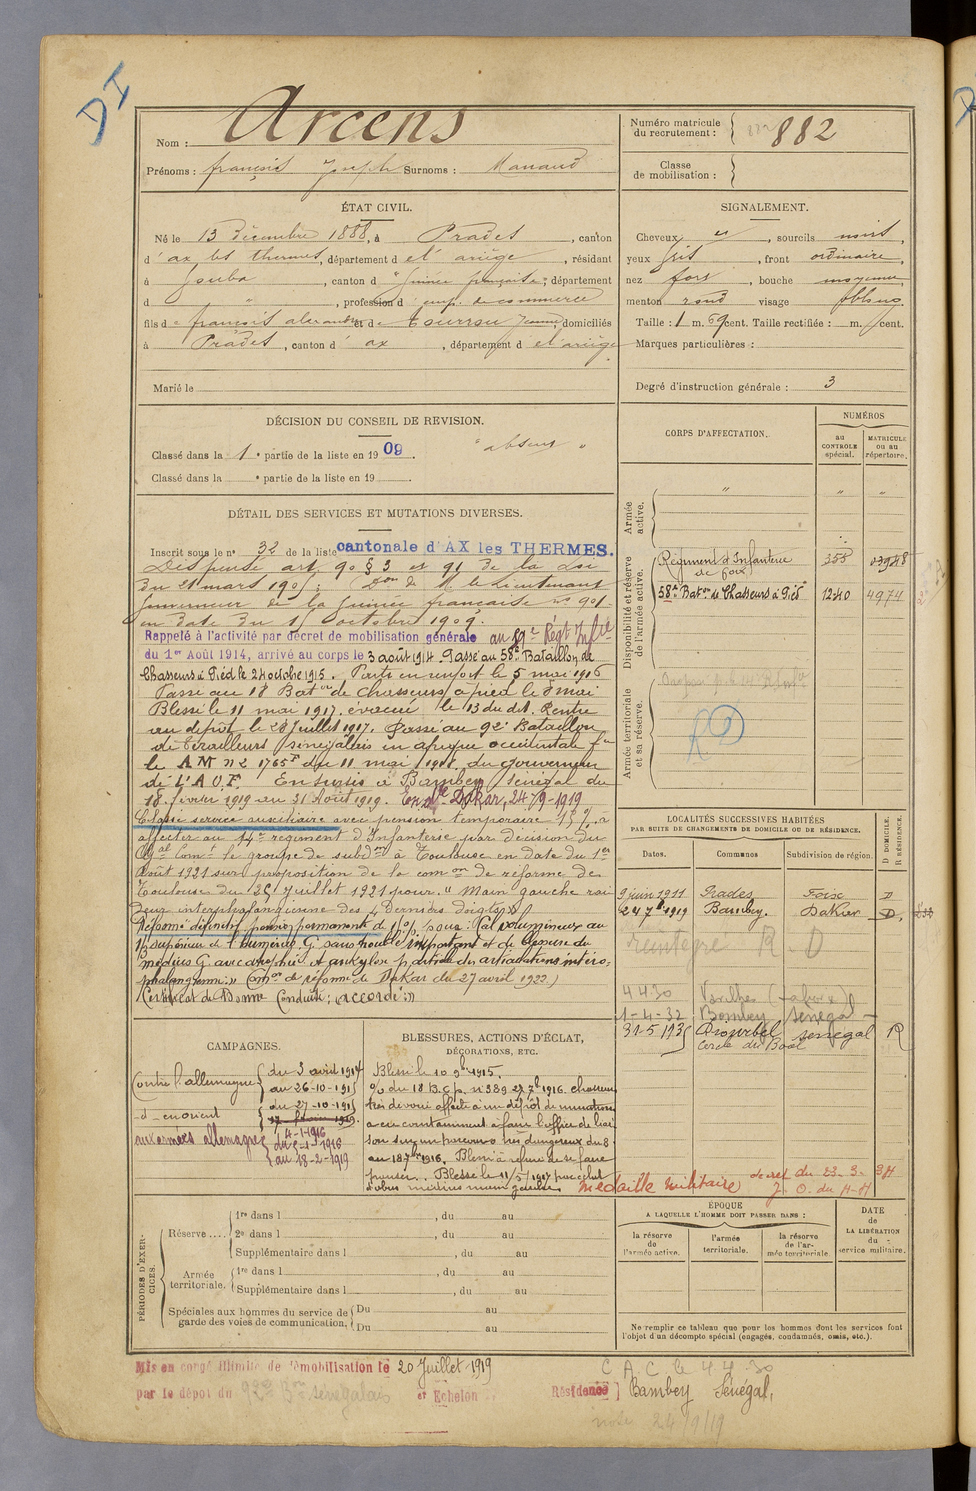 DI
Nom : Arcens
Prénoms : françois Joseph Surnoms :
Numéro matricule du recrutement : 882
Classe de mobilisation :
ÉTAT CIVIL.
Né le 13 Décembre 1888, à Prades, canton
d'ax les thermes, département d el ariège, résidant
à , canton d "Guinée française", département
d " , profession d' emp. de commerce
fils d e françois alexandre et d e Tourrou Jeanne, domiciliés
à Prades, canton d' ax , département d el ariège
Marié le
SIGNALEMENT.
Cheveux et , sourcils noirs,
yeux gris , front ordinaire,
nez fort , bouche moyenne,
menton rond visage oblong
Taille : 1 m. 69 cent. Taille rectifiée : m. cent.
Marques particulières :
Degré d'instruction générale : 3
DÉCISION DU CONSEIL DE REVISION.
Classé dans la 1e partie de la liste en 1909. "absent"
Classé dans la e partie de la liste en 19 .
DÉTAIL DES SERVICES ET MUTATIONS DIVERSES.
Inscrit sous le n° 32 de la liste cantonale d'AX les THERMES.
Dispensé art. 90 § 3 et 91 de la Loi
du 21 mars 1905; Don de M. le Lieutenant
Gouverneur de la Guinée française no 901
en date du 15 octobre 1909.
Rappelé à l'activité par décret de mobilisation générale au 59e Régt Infie
du 1er Août 1914, arrivé au corps le 3 août 1914. Passé au 58e Bataillon de
Chasseurs à Pied le 24 octobre 1915. Parti en renfort le 5 mai 1916
Passé au 18 Baton de chasseurs à pied le 8 mai
Blessé le 11 mai 1917. évacué le 13 du dit. Rentré
au dépôt le 28 juillet 1917. Passé au 92e Bataillon
de Tirailleurs sénégalais en afrique occidentale fse
le AM n° 2 1765F du 11 mai 1918 du gouverneur
de L'A.O.F. En sursis à Bambey Sénégal du
18 février 1919 au 31 Août 1919. Dakar, 24/9-1919
Classé service auxiliaire avec pension temporaire 15 %
affecter au 14e régiment d'Infanterie par décision du
Gal Comt le groupe de subdon à Toulouse en date du 1er
Août 1921 sur proposition de la comon de réforme de
Toulouse du 25 Juillet 1921 pour "Main gauche rai
deur interphalangienne des 4 derniers doigts"
Réformé définitif pension permanente de %, pour : Cal volumineux au
1/3 supérieur de l'humérus G. sans trouble important et de blessure du
médius G. avec atrophie et ankylose partielle des articulations inter-
phalangiennes" Comon de réforme de Dakar du 27 avril 1922.)
Certificat de Bonne Conduite : "accordé"
CORPS D'AFFECTATION.
NUMÉROS
au CONTROLE spécial.
MATRICULE ou au répertoire.
Armée active.
" " "
Disponibilité et réserve de l'armée active.
Régiment d'Infanterie de foix 358
58e Baton de Chasseurs à Pied 1240 4974
Armée territoriale et sa réserve.
RD
LOCALITÉS SUCCESSIVES HABITÉES
PAR SUITE DE CHANGEMENTS DE DOMICILE OU DE RÉSIDENCE.
Dates. Communes Subdivision de région. D DOMICILE. R RÉSIDENCE.
9 juin 1911 Prades Foix D
24 7b 1919 Bambey. Dakar D.
réintégré R D
4 4 30 Varilhes
1-4-32 Bambey Sénégal
31-5 1935 Diourbel Sénégal R
Cercle du Baol
CAMPAGNES.
Contre l'allemagne du 3 août 1914
au 26-10-1915
-d- en orient du 27-10-1915
4-1-1916
aux armées allemagne du 5-1-1916
au 18-2-1919
BLESSURES, ACTIONS D'ÉCLAT,
DÉCORATIONS, ETC.
Blessé le 10 9bre 1915.
O/ du 18 B.C.P. n° 389 27 7b 1916. chasseur
très dévoué affecté à un dépôt de munitions
a eu constamment à faire l'office de liai
son sur un parcours très dangereux du 8
au 18 7bre 1916. Blessé a refusé de se faire
panser. Blessé le 11/5/1917 par éclat
d'obus médius main gauche
Médaille militaire décret du 23-3-
J.O. du
PÉRIODES D'EXERCICES.
Réserve .... 1re dans l , du au
2e dans l , du au
Supplémentaire dans l , du au
Armée territoriale. 1re dans l , du au
Supplémentaire dans l , du au
Spéciales aux hommes du service de garde des voies de communication. Du au
Du au
ÉPOQUE
A LAQUELLE L'HOMME DOIT PASSER DANS :
la réserve de l'armée active.
l'armée territoriale.
la réserve de l'armée territoriale.
DATE de LA LIBÉRATION du service militaire.
Ne remplir ce tableau que pour les hommes dont les services font
l'objet d'un décompte spécial (engagés, condamnés, omis, etc.).
Mis en congé illimité de démobilisation le 20 Juillet 1919
par le dépôt du 92e Bon Sénégalais er Echelon
CAC le 4 4 30
Résidence Bambey Sénégal,